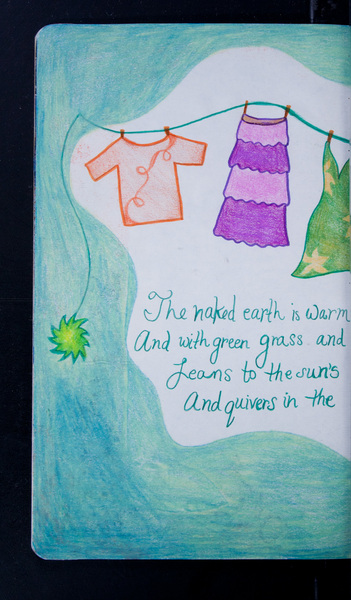 The naked earth is warm
And with green grass and
Leans to the sun's
And quivers in the